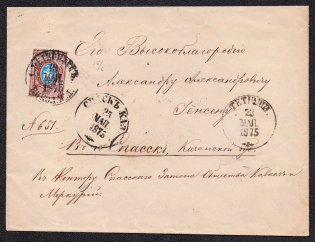 Его Высокоблагородію
Александру Александровичу
СПАССКЪ КАЗ
25
МАЯ
1875
ТЕТЮШИ
23
МАЯ
1875
№ 651.
Спасскъ, Казанской
Въ Контору Спасскаго Затона Общества Кавказъ и
Меркурій